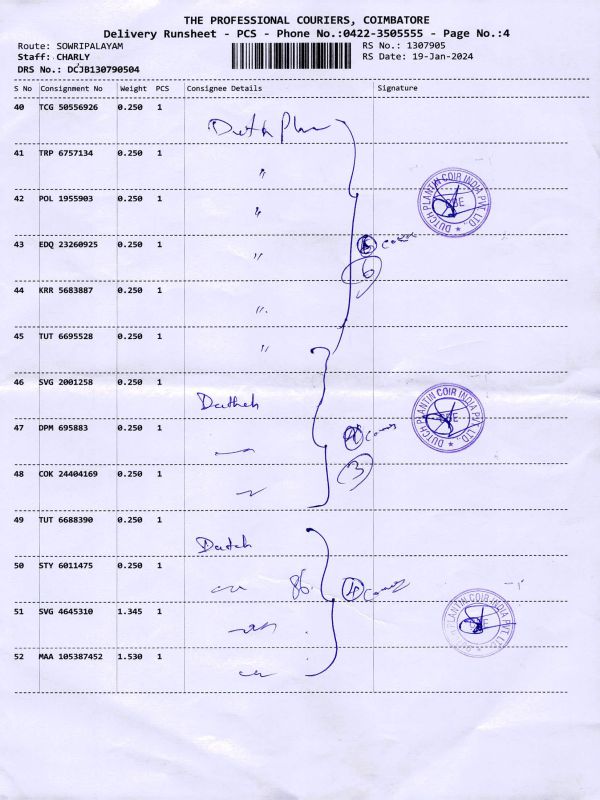 THE PROFESSIONAL COURIERS, COIMBATORE
Delivery Runsheet - PCS - Phone No.:0422-3505555 - Page No.:4
Route: SOWRIPALAYAM RS No.: 1307905
Staff: CHARLY RS Date: 19-Jan-2024
DRS No.: DCJB130790504
S No Consignment No Weight PCS Consignee Details Signature
40 TCG 50556926 0.250 1
41 TRP 6757134 0.250 1 "
42 POL 1955903 0.250 1 "
DUTCH PLANTIN COIR INDIA PVT LTD
43 EDQ 23260925 0.250 1 "
6
44 KRR 5683887 0.250 1 "
45 TUT 6695528 0.250 1 "
46 SVG 2001258 0.250 1
DUTCH PLANTIN COIR INDIA PVT LTD
47 DPM 695883 0.250 1
48 COK 24404169 0.250 1
3
49 TUT 6688390 0.250 1
Dutch
50 STY 6011475 0.250 1
86 4
51 SVG 4645310 1.345 1
PLANTIN COIR INDIA PVT LTD
52 MAA 105387452 1.530 1